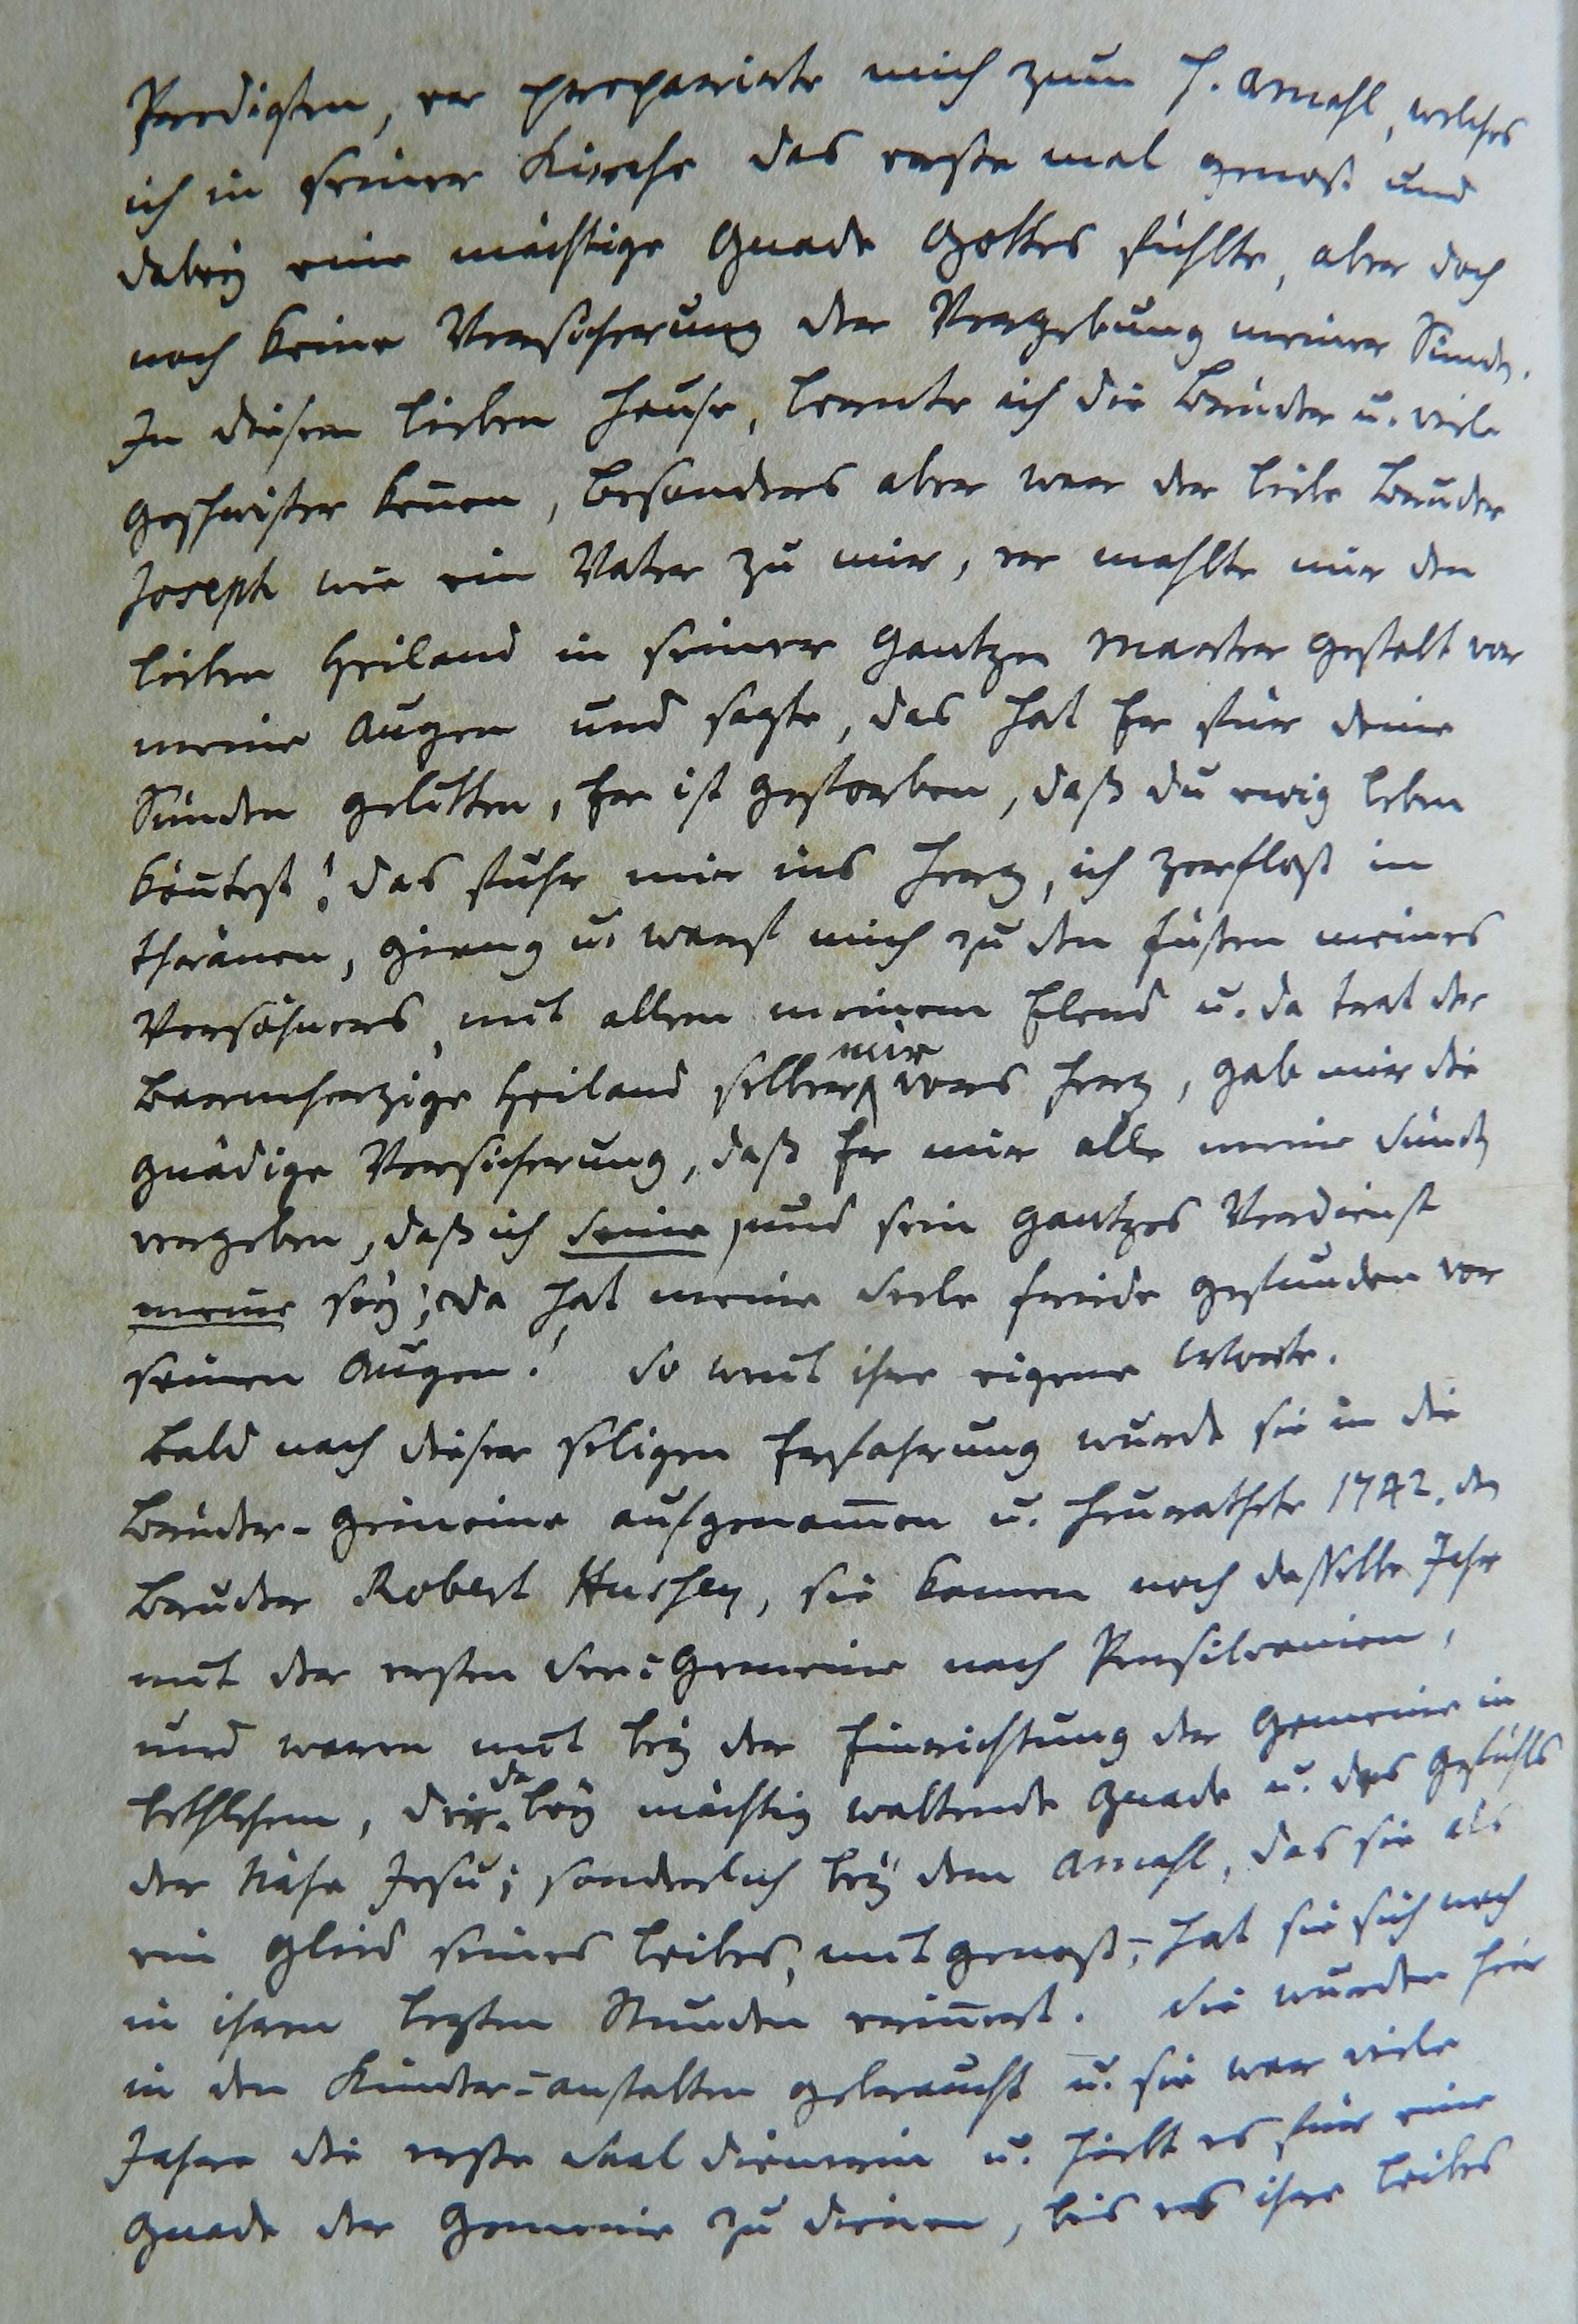 Predigten, er preparirte mich zum h. Amahl, welches
ich in seiner Kirche das erste mal genoß und
dabey eine mächtige Gnade Gottes fühlte, aber doch
noch keine Versicherung der Vergebung meiner Sünden.
In diesem lieben Hause, lernte ich die Brüder u. viele
Geschwister kennen, besonders aber war der liebe Bruder
Joseph wie ein Vater zu mir, er mahlte mir den
lieben Heiland in seiner gantzen Marter gestalt vor
meine Augen und sagte, das hat Er für deine
Sünden gelitten, Er ist gestorben, daß du ewig leben
köntest! das fuhr mir ins Hertz, ich zerfloß in
thränen, gieng u. warf mich zu den Füßen meines
Versöhners, mit allem meinem Elend u. da trat der
barmhertzige Heiland selber mir vors Hertz, gab mir die
gnädige Versicherung, daß Er mir alle meine Sünden
vergeben, daß ich seine, und sein gantzes Verdienst
meine sey; da hat meine Seele Friede gefunden vor
seinen Augen! So weit ihre eigene Worte.
Bald nach dieser seligen Erfahrung wurde sie in die
Brüder-Gemeine aufgenom̅en u. heurathete 1742. den
Bruder Robert Hussey, sie kamen noch dasselbe Jahr
mit der ersten See-Gemeine nach Pensilvanien,
und waren mit bey der Einrichtung der Gemeine in
Bethlehem, die da bey mächtig waltende Gnade u. des Gefühls
der Nähe Jesu; sonderlich bey dem Amahl, das sie als
ein Glied seines Leibes, mit genoß, hat sie sich noch
in ihren lezten Stunden erin̅ert. Sie wurden hier
in den Kinder-anstalten gebraucht u. sie war viele
Jahre die erste Saal dienerin u. hielt es für eine
Gnade der Gemeine zu dienen, bis es ihre Leibes